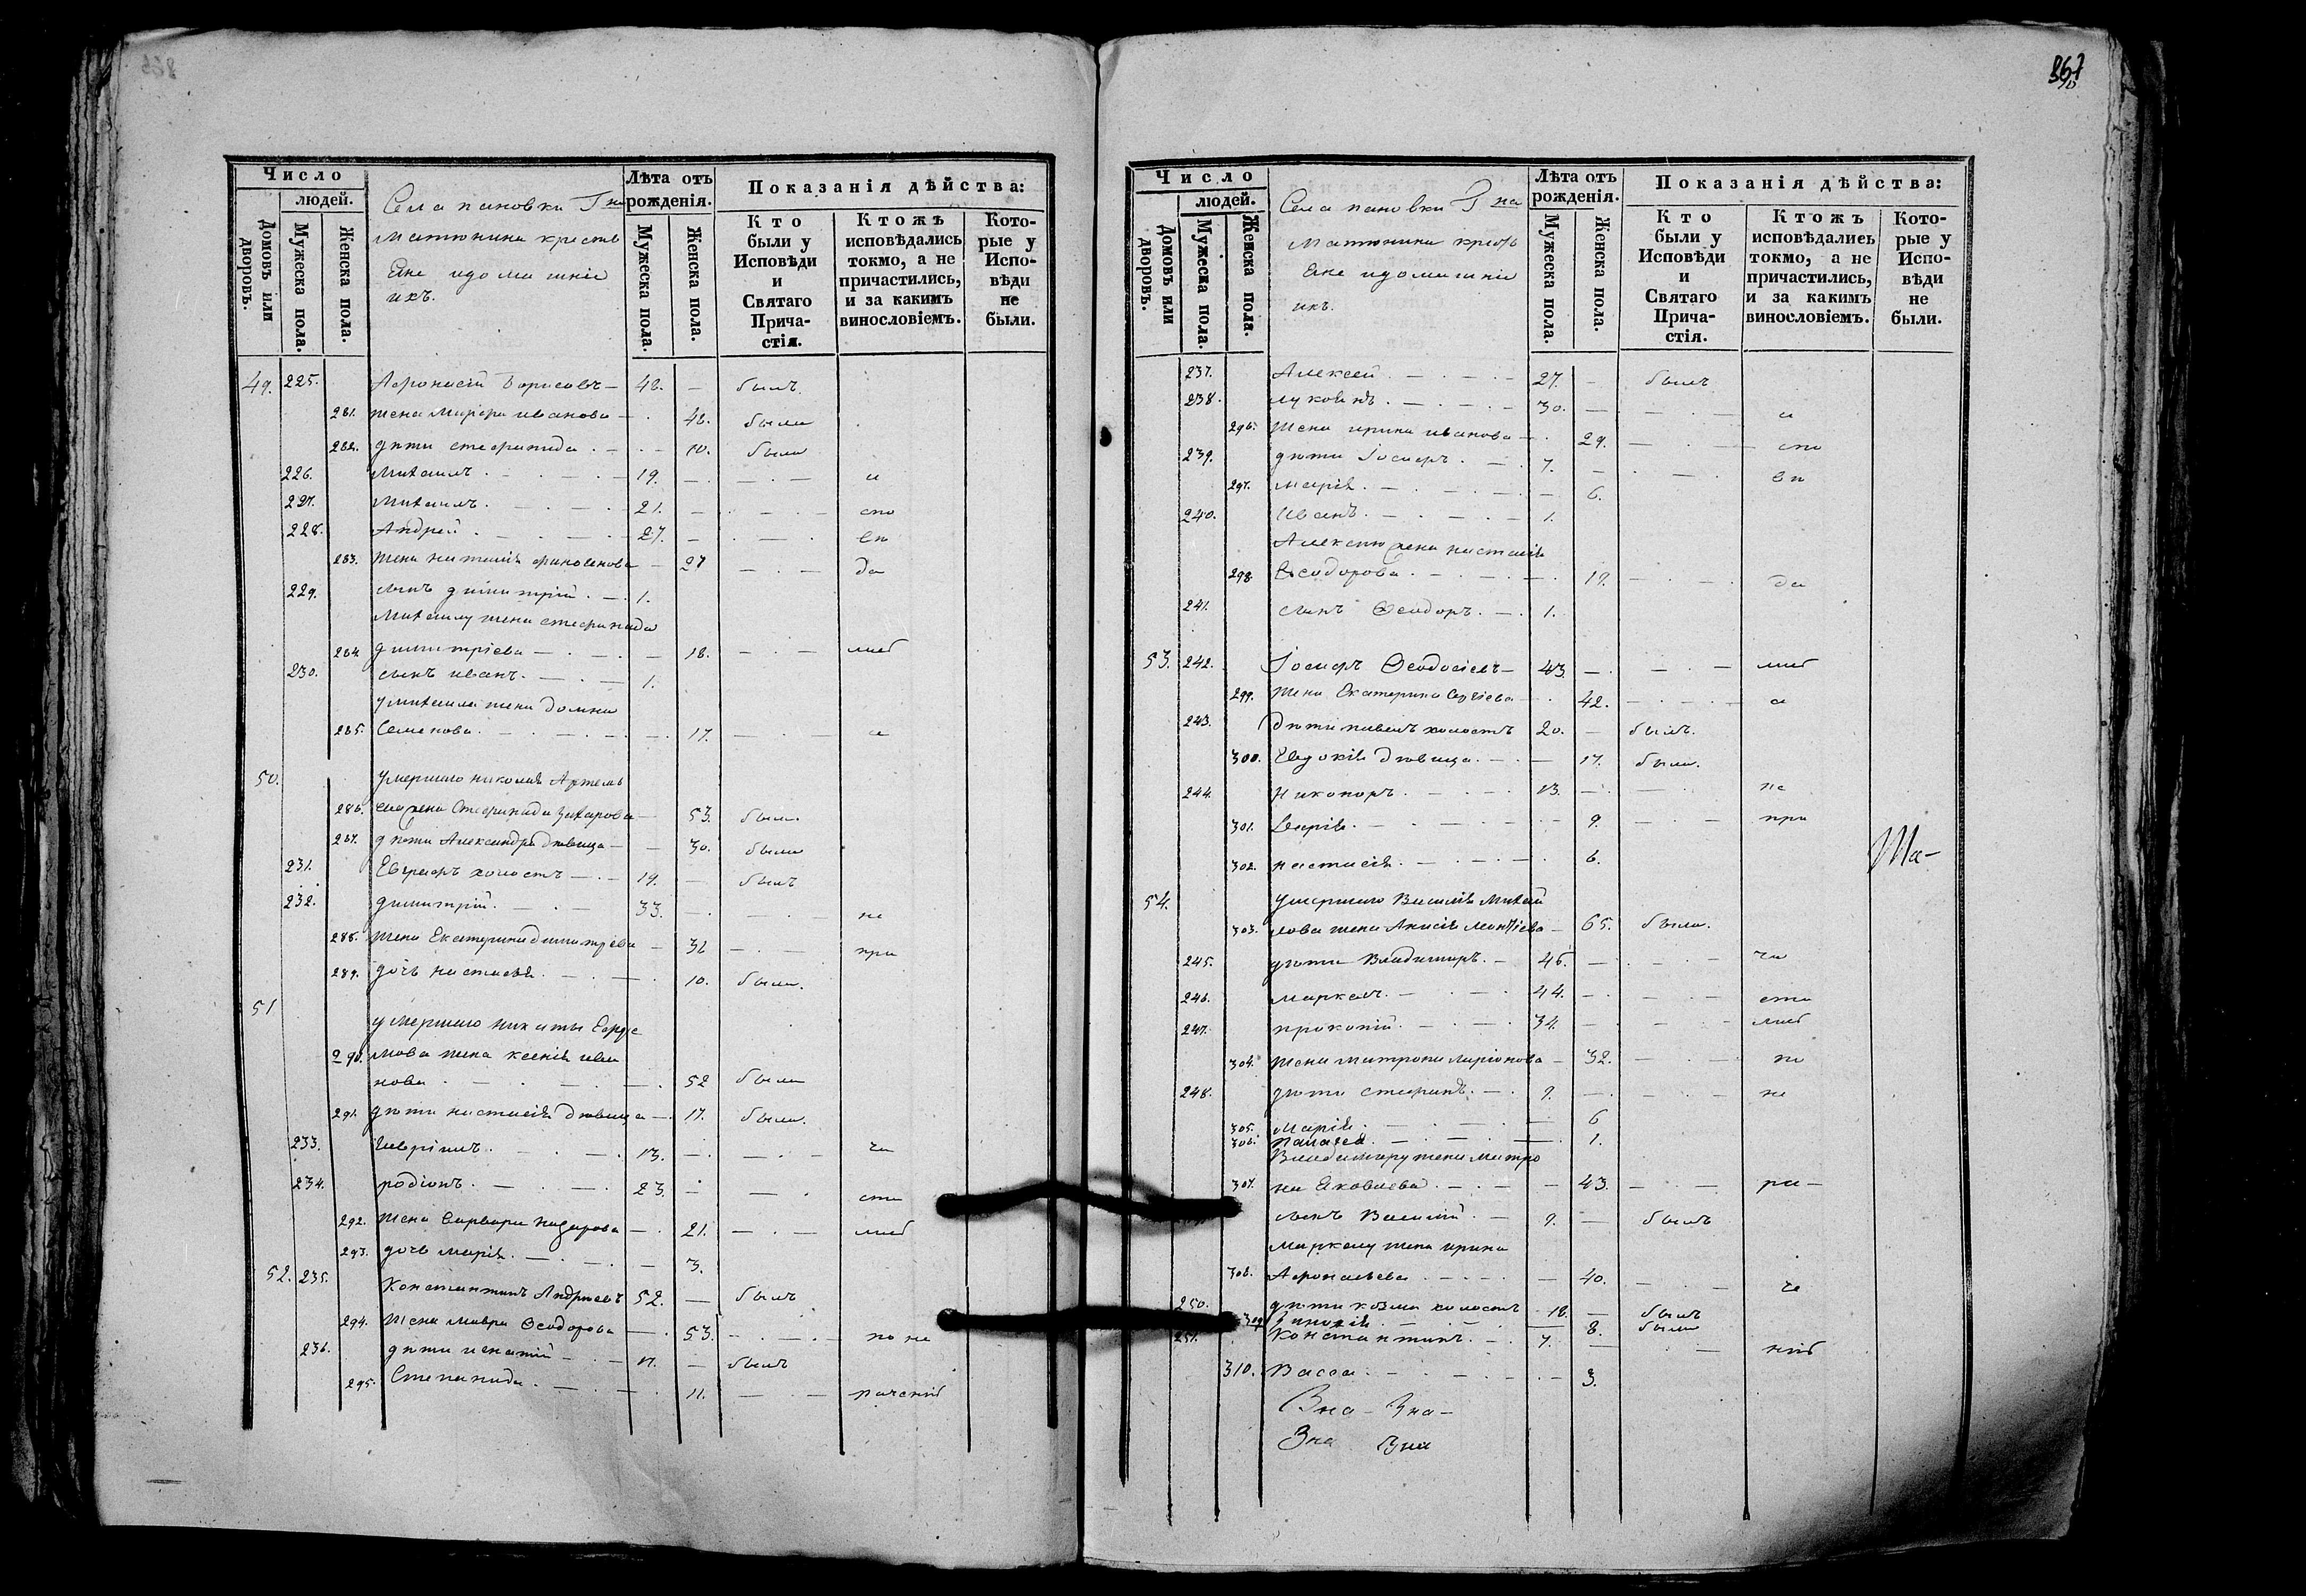 867
Число
людей.
Домовъ или дворовъ.
Мужеска пола.
Женска пола.
Села пановки Гна
Матюнина крестья
не и домашніе
ихъ.
Лѣта отъ рожденія.
Мужеска пола.
Женска пола.
Показанія дѣйства:
Кто были у Исповѣди и Святаго Причастія.
Ктожъ исповѣдались токмо, а не причастились, и за какимъ винословіемъ.
Которые у Исповѣди не были.
49. 225. Афонасій Борисовъ — 48. — былъ
281. жена Марфа иванова — 48. была
282. дѣти стефанида — 10. была
226. Михаилъ — 19. — и
227. Михаилъ — 21. — спо
228. Андрей — 27. — вѣ
283. жена наталія — 27 — да
229. сынъ димитрій — 1.
Михаилу жена стефанида
284. димитріева — 18. — лиѣ
230. сынъ иванъ — 1.
у михаила жена домна
285. Семенова — 17. — и
50. умершаго николая Артемь
286. ева жена Стефанида Захарова — 53. была
287. дѣти Александра дѣвица — 30. была
231. Евграфъ холостъ — 19. — былъ
232. димитрій — 33. — не
288. жена Екатерина димитріева — 32 — при
289. дочь настасья — 10. была.
51 умершаго никиты Ефре
290. мова жена ксенія ива
нова — 52 была
291. дѣти настасія дѣвица — 17. была.
233. Гавріилъ — 13. — ча
234. родіонъ — 23. — сти
292. жена варвара назарова — 21. — лиѣ
293. дочь марія — 3.
52. 235. Константинъ Андреевъ 52. — былъ
294. жена мавра Ѳеодорова — 53. — по не
236. дѣти игнатій — 17. — былъ
295. Степанида — 11. — раченію
Число
людей.
Домовъ или дворовъ.
Мужеска пола.
Женска пола.
Села пановки Гна
Матюнина кресть
яне и домашніе
ихъ.
Лѣта отъ рожденія.
Мужеска пола.
Женска пола.
Показанія дѣйства:
Кто были у Исповѣди и Святаго Причастія.
Ктожъ исповѣдались токмо, а не причастились, и за какимъ винословіемъ.
Которые у Исповѣди не были.
237. Алексей — 27. — былъ
238. — 30. — и
296. жена ирина иванова — 29. — спо
239. дѣти Іосифъ — 7. — вѣ
297. марія — 6.
240. Иванъ — 1.
Алексею жена настасія
298. Ѳеодорова — 19. — да
241. сынъ Ѳеодоръ — 1.
53. 242. Іосифъ Ѳеодосіевъ — 43. — лиѣ
299. жена Екатерина Сергіева — 42. — а
243. дѣти павелъ холостъ 20. — былъ.
300. Евдокія дѣвица — 17. была.
244. Никаноръ — 13. — не
301. Дарія — 9. — при
302. настасія — 6.
Ша-
54. умершаго Василія Михай
303. лова жена Анисія — 65. была.
245. дѣти Владимиръ — 46. — ча
246. маркелъ — 44. — сти
247. прокопій — 34. — лиѣ
304. жена матрона ларіонова — 32. — по
248. дѣти стефанъ — 9. — не
305. марія — 6
306. Палагея — 1.
Владимиру жена матро
307. на Яковлева — 43. — ра—
сынъ Василій — 9. — былъ
маркелу жена ирина
308. Афонасьева — 40. — че
250. дѣти козма холостъ 18. — былъ
309 Зиновія — 8. была
251. Константинъ — 7. — нію
310. Васса — 3.